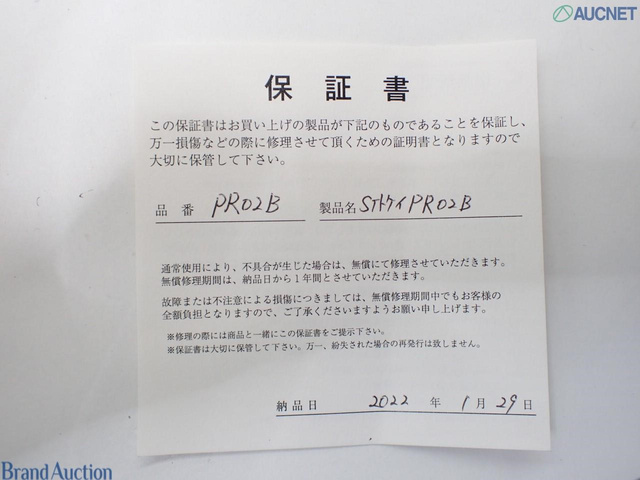 AUCNET
保証書
この保証書はお買い上げの製品が下記のものであることを保証し、
万一損傷などの際に修理させて頂くための証明書となりますので
大切に保管して下さい。
品番 PR02B 製品名 STトケイPR02B
通常使用により、不具合が生じた場合は、無償にて修理させていただきます。
無償修理期間は、納品日から1年間とさせていただきます。
故障または不注意による損傷につきましては、無償修理期間中でもお客様の
全額負担となりますので、ご了承くださいますようお願い申し上げます。
※修理の際には商品と一緒にこの保証書をご提示下さい。
※保証書は大切に保管して下さい。万一、紛失された場合の再発行は致しません。
納品日 2022 年 1 月 29 日
Brand Auction